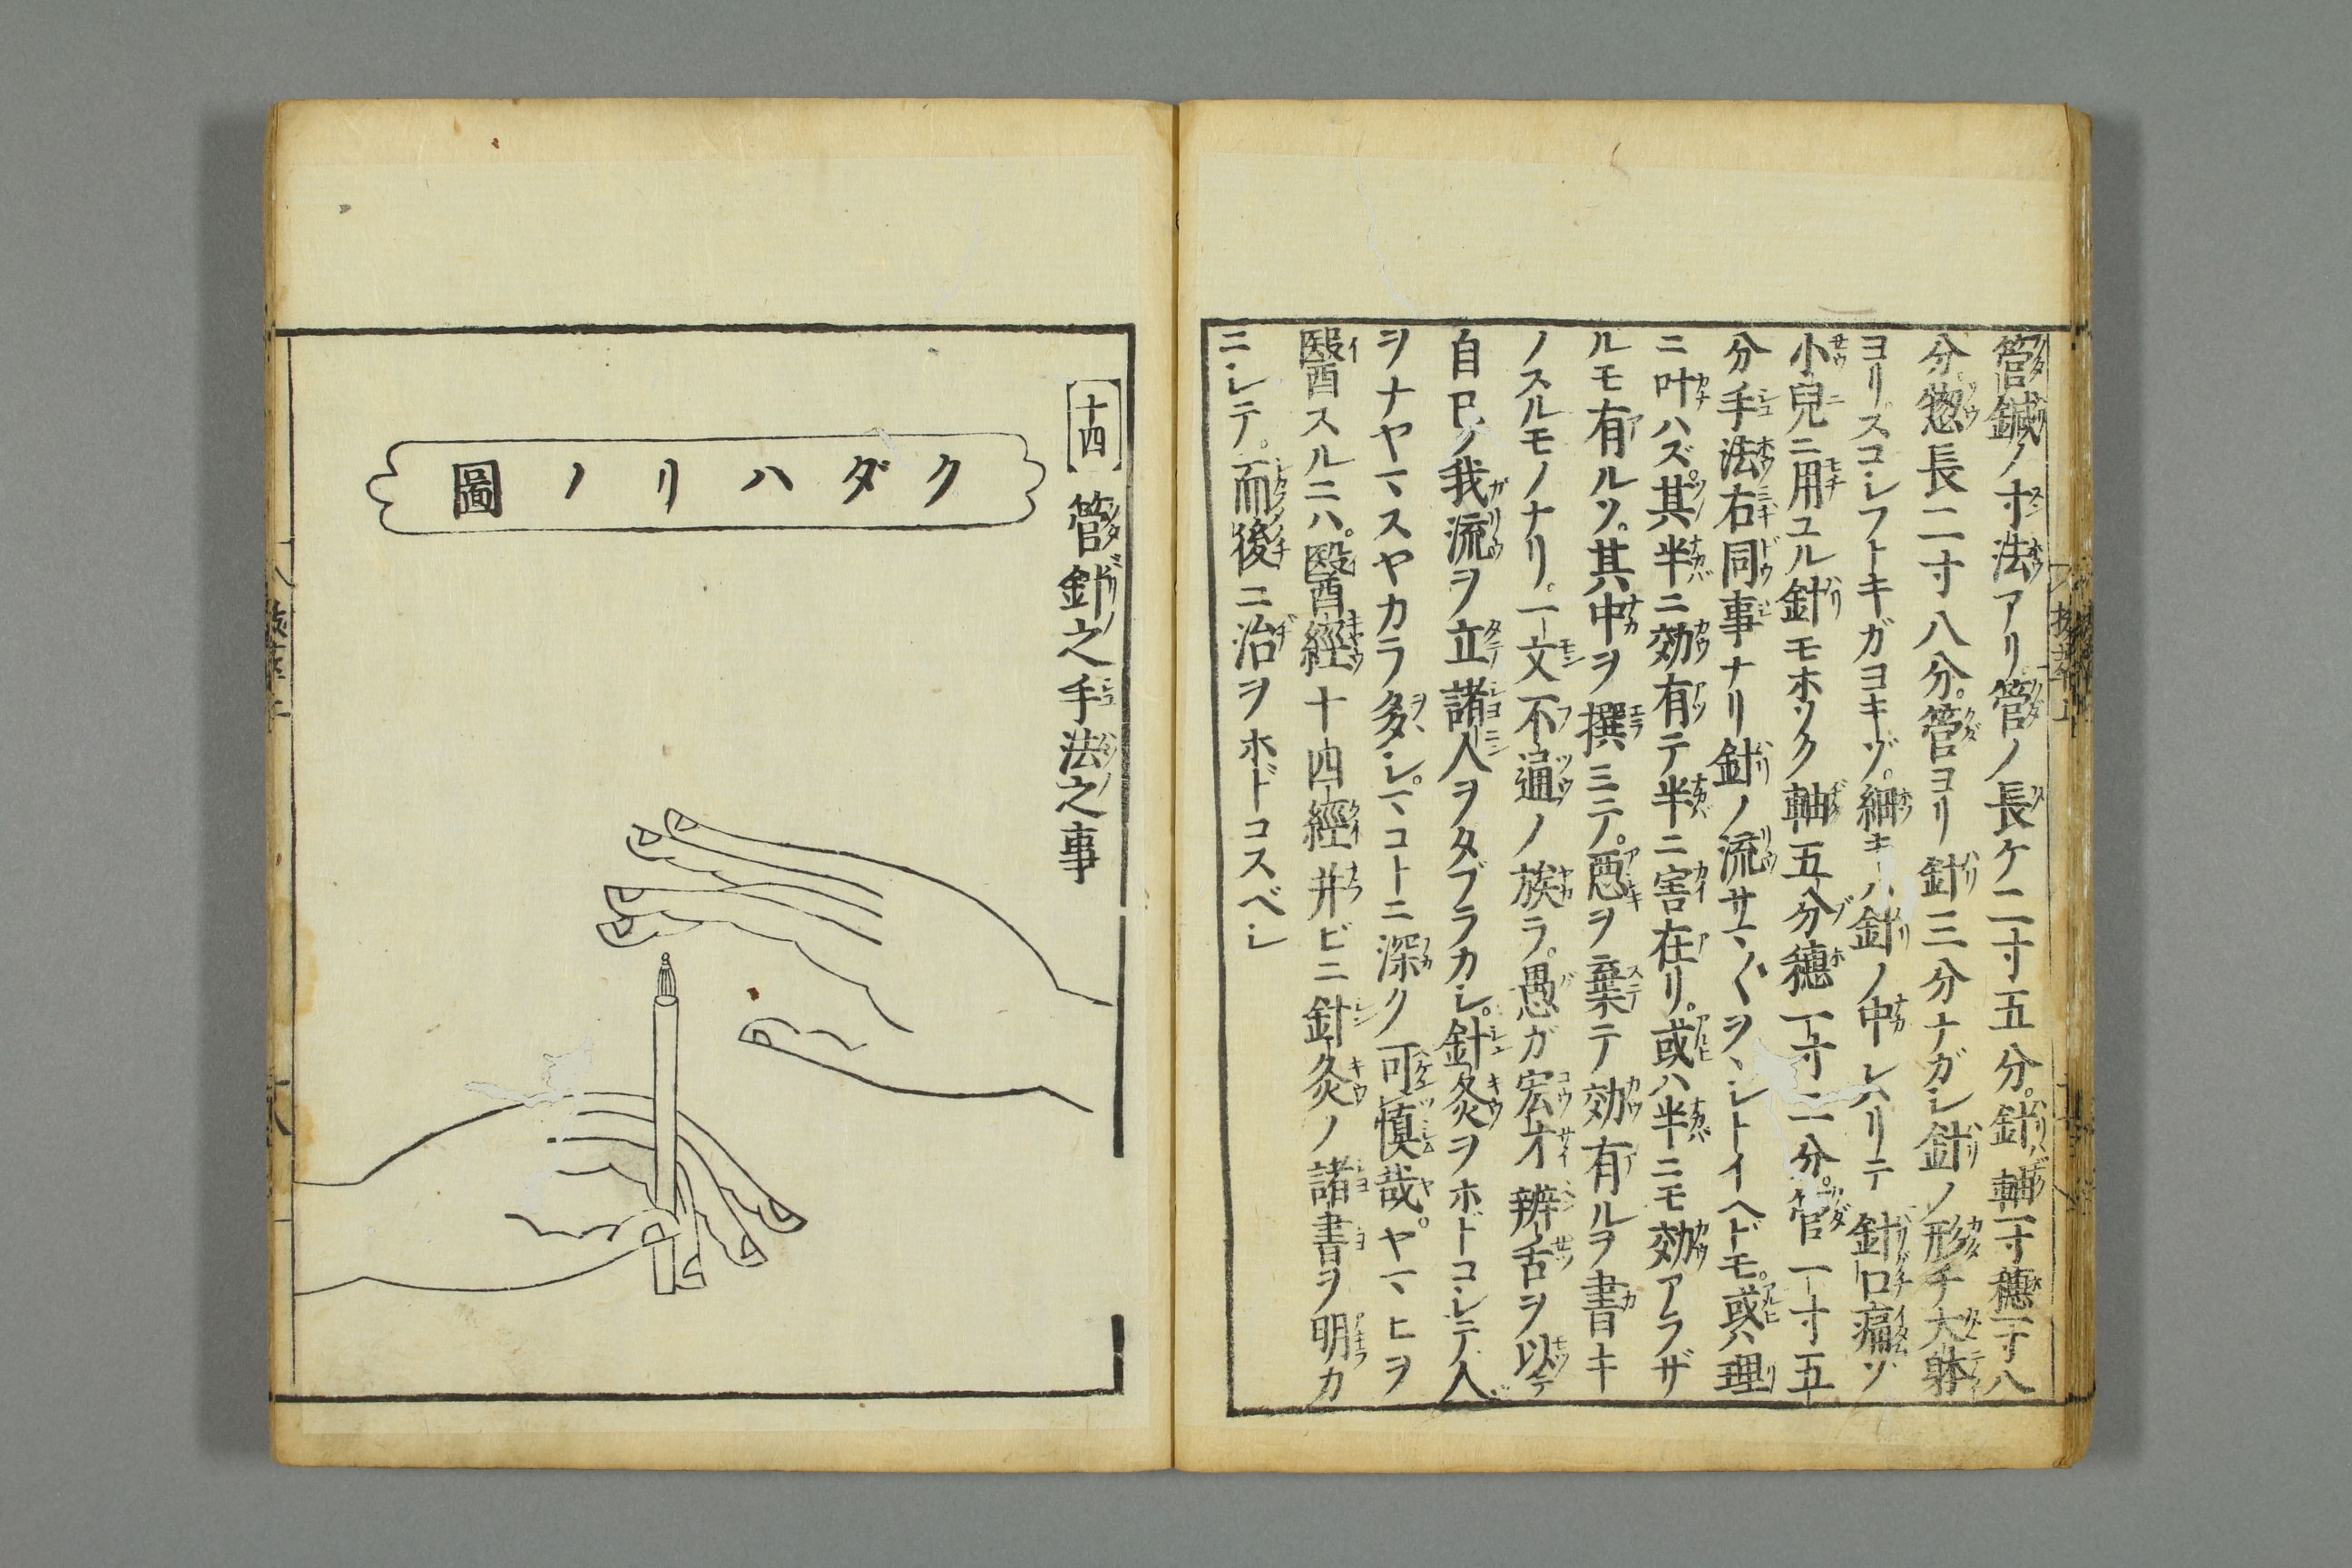 管鍼ノ寸法アリ管ノ長ケ二寸五分。針ノ軸一寸穂一寸八
分惣長二寸八分。管ヨリ針三分ナガシ針ノ形チ大躰
ヨリスコシフトキガヨキゾ。細キハ針ノ中シハリテ針口痛ゾ
小兒ニ用ユル針モホソク軸五分穂一寸二分。管一寸五
分手法右同事ナリ針ノ流サマ〱ヲヽシトイヘドモ。或ハ理
ニ叶ハズ。其半ニ効有テ半ニ害在リ。或ハ半ニモ効アラザ
ルモ有ルソ。其中ヲ撰ミテ。悪ヲ棄テ効有ルヲ書キ
ノスルモノナリ。一文不通ノ族ラ。愚ガ宏才辨舌ヲ以テ
自己ノ我流ヲ立諸人ヲタブラカシ。針灸ヲホドコシテ人
ヲナヤマスヤカラ多シ。マコトニ深ク可慎哉。ヤマヒヲ
醫スルニハ。醫經十四經并ビニ針灸ノ諸書ヲ明カ
ニシテ。而後ニ治ヲホドコスベシ
[十四]管針之手法之事
クダハリノ圖